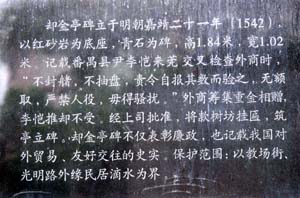 却金亭碑立于明朝嘉靖二十一年(1542),
以红砂岩为底座,青石为碑,高1.84米,宽1.02
米。记载番禺县尹李恺来莞交叉检查外商时,
“不封舶,不抽盘,责令自报其数而验之,无额
取,严禁人役,毋得骚扰。”外商筹集重金相赠,
李恺推却不受,经上司批准,将款树坊挂匾,筑
亭立碑。却金亭碑不仅表彰廉政,也记载我国对
外贸易、友好交往的史实。保护范围:以教场街、
光明路外缘民居滴水为界